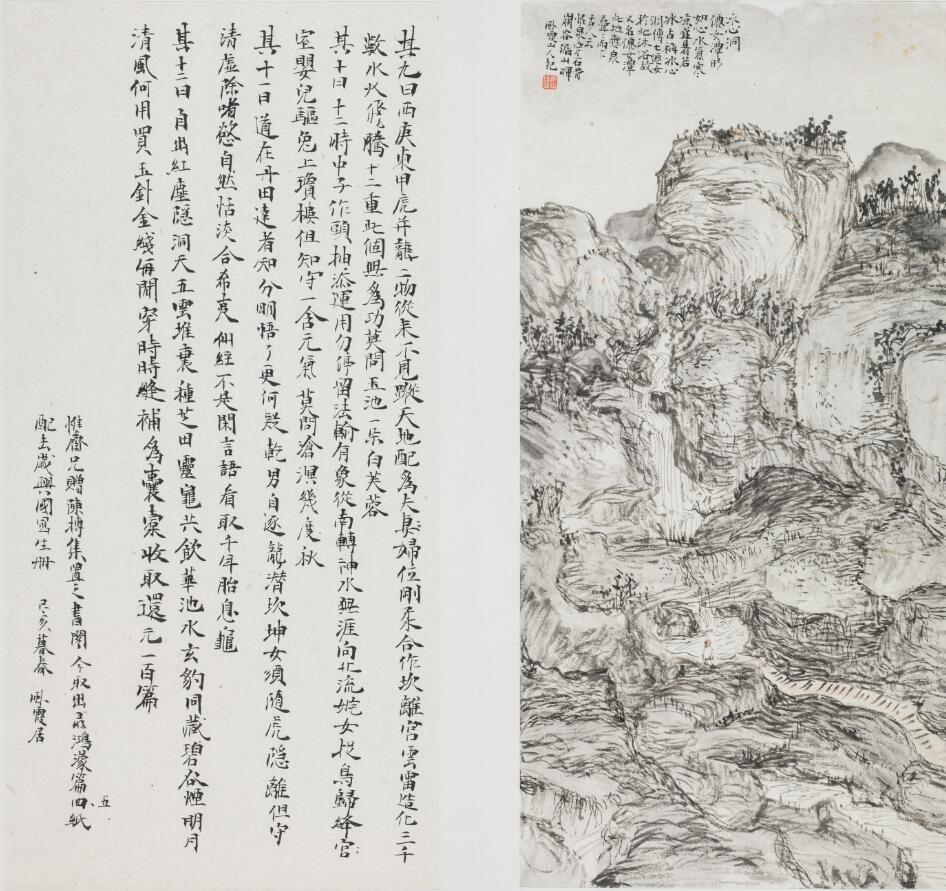 冰心洞
僊女潭形
如心水氣寒
冰古稱冰心
洞傳七僊女
於此沐浴故
又名僊女潭
古人云
谷漏山暉
山人記
其九曰西庚東甲虎并龍二物從來不見蹤天地配為夫婦位剛柔合作坎離宮雲雷造化三千
數水火飛騰十二重此個無為功莫問玉池一朵白芙蓉
其十曰十二時中子作頭抽添運用勿停留法輪有象從南轉神水無涯向北流姹女投烏歸絳宮
室嬰兒驅兔上瓊樓但知守一含元氣莫問滄溟幾度秋
其十一曰道在丹田達者知分明悟了更何疑乾男自逐龍潛坎坤女須隨虎隱離但守
清虛除嗜慾自然恬淡合希夷仙經不是閑言語看取千年胎息龜
其十二曰自出紅塵隱洞天五雲堆裏種芝田靈龜共飲華池水玄豹同藏碧谷煙明月
清風何用買玉針金綫每閑穿時時縫補為囊橐收取還元一百篇
惟齋兄贈陳摶集置之書閣今取出鴻濛篇四五紙
配去歲興國寫生冊 己亥暮春 臥霞居